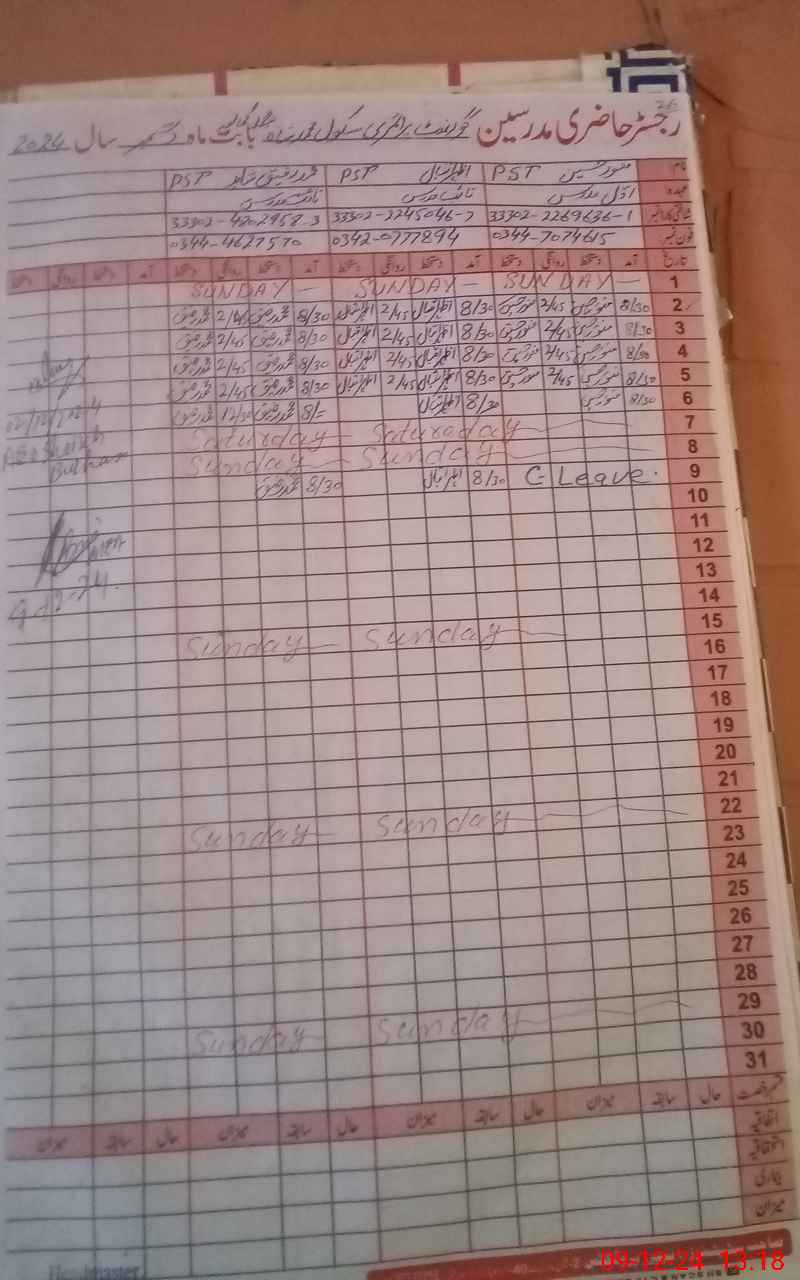 26
رجسٹر حاضری مدرسین گورنمنٹ پرائمری سکول بابت ماہ دسمبر سال 2024
نام منور حسین PST اظہر اقبال PST محمد رفیق PST
عہدہ اول مدرس نائب مدرس نائب مدرس
شناختی کارڈ نمبر 33302-2269636-1 33302-2245046-7 33302-4202958-3
فون نمبر 0344-7074615 0342-0777894 0344-4627570
تاریخ آمد دستخط روانگی دستخط آمد دستخط روانگی دستخط آمد دستخط روانگی دستخط آمد دستخط روانگی دستخط
1 SUNDAY — SUNDAY — SUNDAY —
2 8/30 منور حسین 2/45 منور حسین 8/30 اظہر اقبال 2/45 اظہر اقبال 8/30 محمد رفیق 2/45 محمد رفیق
3 8/30 منور حسین 2/45 منور حسین 8/30 اظہر اقبال 2/45 اظہر اقبال 8/30 محمد رفیق 2/45 محمد رفیق
4 8/30 منور حسین 2/45 منور حسین 8/30 اظہر اقبال 2/45 اظہر اقبال 8/30 محمد رفیق 2/45 محمد رفیق
5 8/30 منور حسین 2/45 منور حسین 8/30 اظہر اقبال 2/45 اظہر اقبال 8/30 محمد رفیق 2/45 محمد رفیق
6 8/30 منور حسین 8/30 اظہر اقبال 8/= محمد رفیق 12/30 محمد رفیق
02/12/2024
7 Saturday — Saturaday —
8 Sunday — Sunday —
9 C-Leave. 8/30 اظہر اقبال 8/30 محمد رفیق
10
11
12
13
9-12-24.
14
15 Sunday — Sunday —
16
17
18
19
20
21
22 Sunday — Sunday —
23
24
25
26
27
28
29 Sunday — Sunday —
30
31
قسم رخصت حال سابقہ میزان حال سابقہ میزان حال سابقہ میزان حال سابقہ میزان
اتفاقیہ
استحقاقیہ
بیماری
میزان
Headmaster
09-12-24 13.18